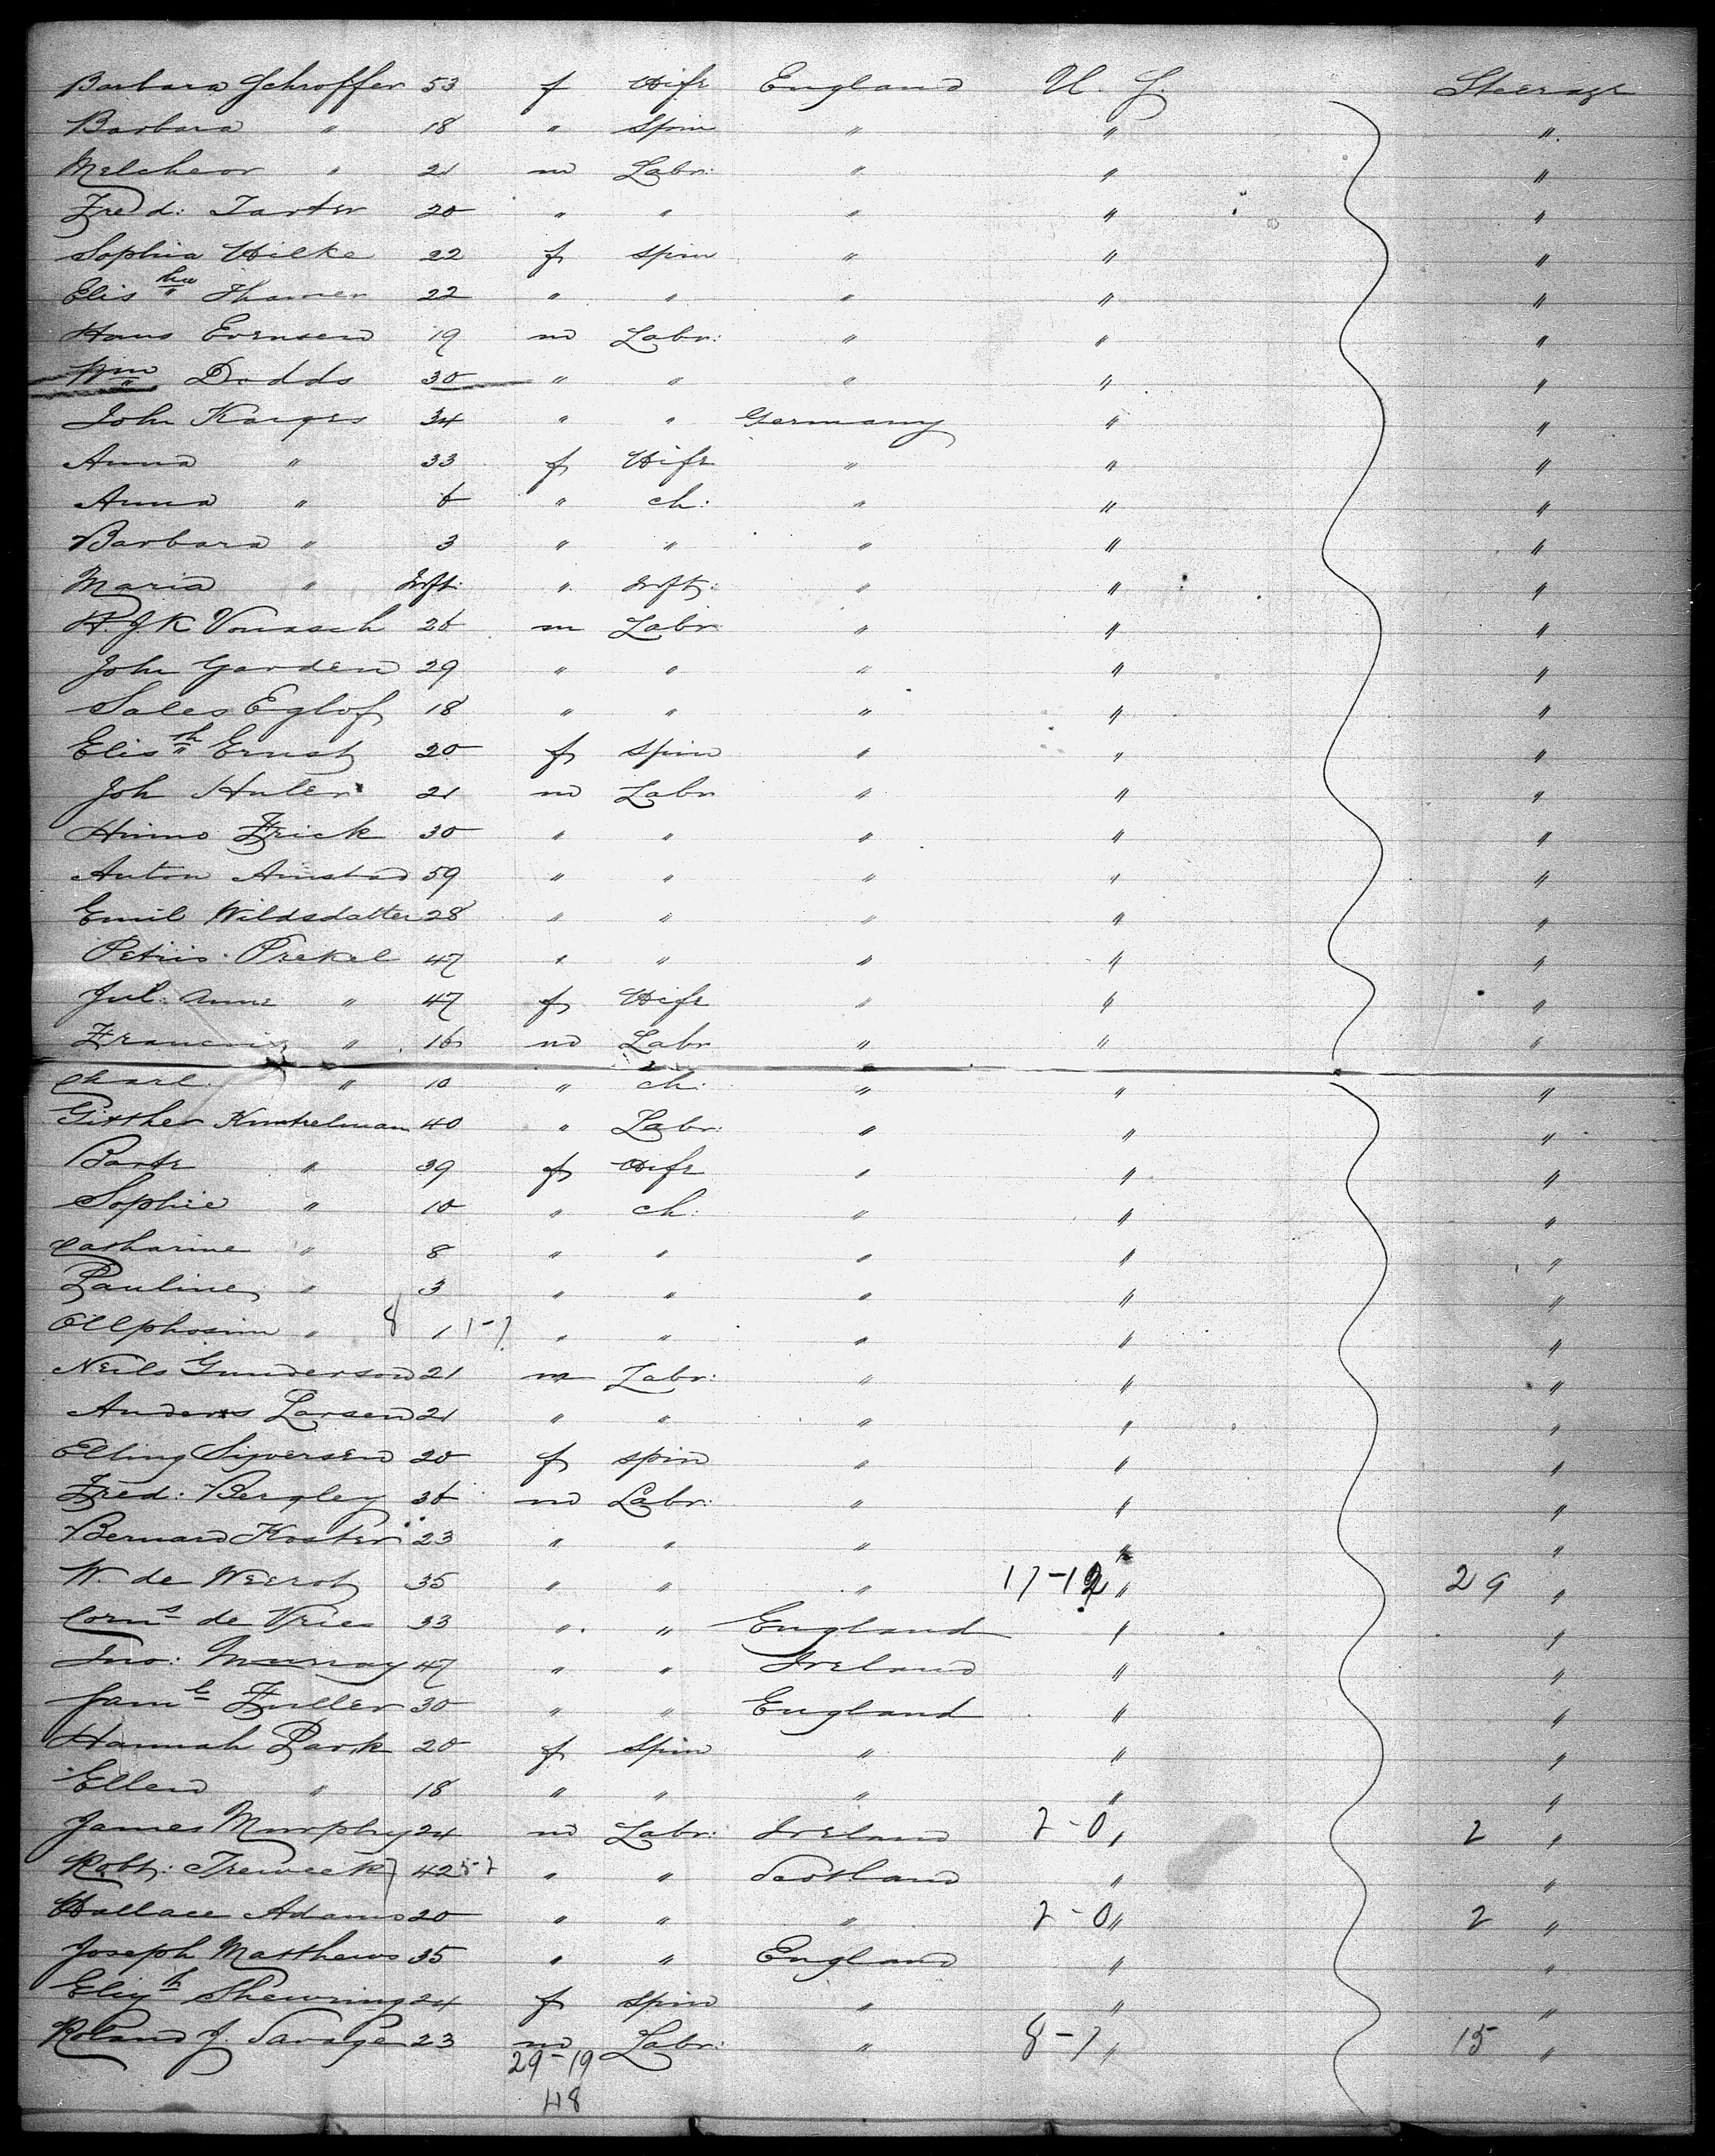 Barbara Schroffer 53 f Wife England U. S. Steerage
Barbara " 18 " Spin " " "
Melcheor " 21 m Labr: " " "
Fred: Tarter 20 " " " " "
Sophia Wilke 22 f Spin " " "
Elis 22 " " " " "
Hans Evensen 19 m Labr: " " "
Wm Dodds 30 " " " " "
John Karges 34 " " Germany " "
Anna " 33 f Wife " " "
Anna " 6 " ch: " " "
Barbara " 3 " " " " "
Maria " Inft: " Inft: " " "
26 m Labr " " "
John Garden 29 " " " " "
Sales Eglof 18 " " " " "
Elisth Ernst 20 f Spin " " "
Joh Huler 21 m Labr " " "
Hinno Frick 30 " " " " "
Anton Amstad 59 " " " " "
Emil Wildsdatter 28 " " " " "
Petris Prekel 47 " " " " "
Jul: Anne " 47 f Wife " " "
" 16 m Labr " " "
Charl: " 10 " ch: " " "
40 " Labr: " " "
" 39 f Wife " " "
Sophie " 10 " ch: " " "
Catharine " 8 " " " " "
Pauline " 3 " " " " "
" 8 1 1-7 " " " " "
Neils Gunderson 21 m Labr: " " "
Anders Larsen 21 " " " " "
Elling Siversen 20 f spin " " "
Fred: Bergley 36 m Labr: " " "
Bernard Koster 23 " " " " "
W. de Weerot 35 " " " 17-12 " 29 "
Corns de Vries 33 " " England " "
Jno: Murray 47 " " Ireland " "
Saml Fuller 30 " " England " "
Hannah Park 20 f Spin " " "
Ellen " 18 " " " " "
James Murphy 24 m Labr: Ireland 2-0 " 2 "
Robt: Treweek 7 42 5-2 " " Scotland " "
Wallace Adams 20 " " " 2-0 " 2 "
Joseph Matthews 35 " " England " "
Elizth Shewring 24 f spin " " "
Roland J. Savage 23 m Labr: " 8-7 " 15 "
29-19
48